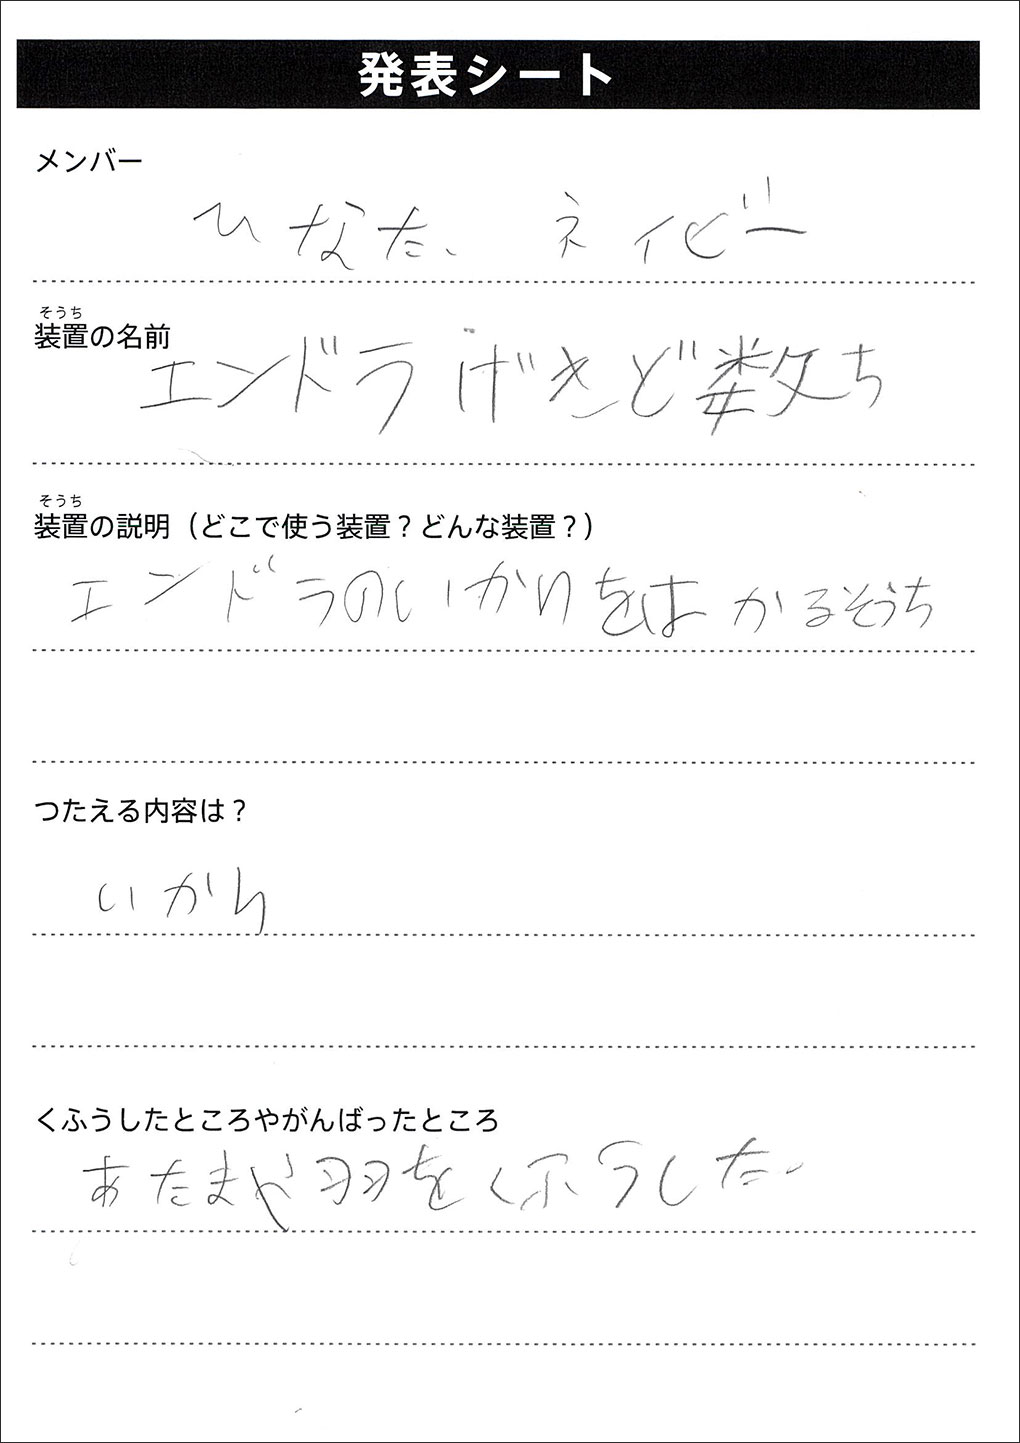 発表シート
メンバー
ひなた、ネイビー
そうち
装置の名前
エンドラげきど数ち
そうち
装置の説明（どこで使う装置？どんな装置？）
エンドラのいかりをはかるそうち
つたえる内容は？
いかり
くふうしたところやがんばったところ
あたまや羽をくふうした